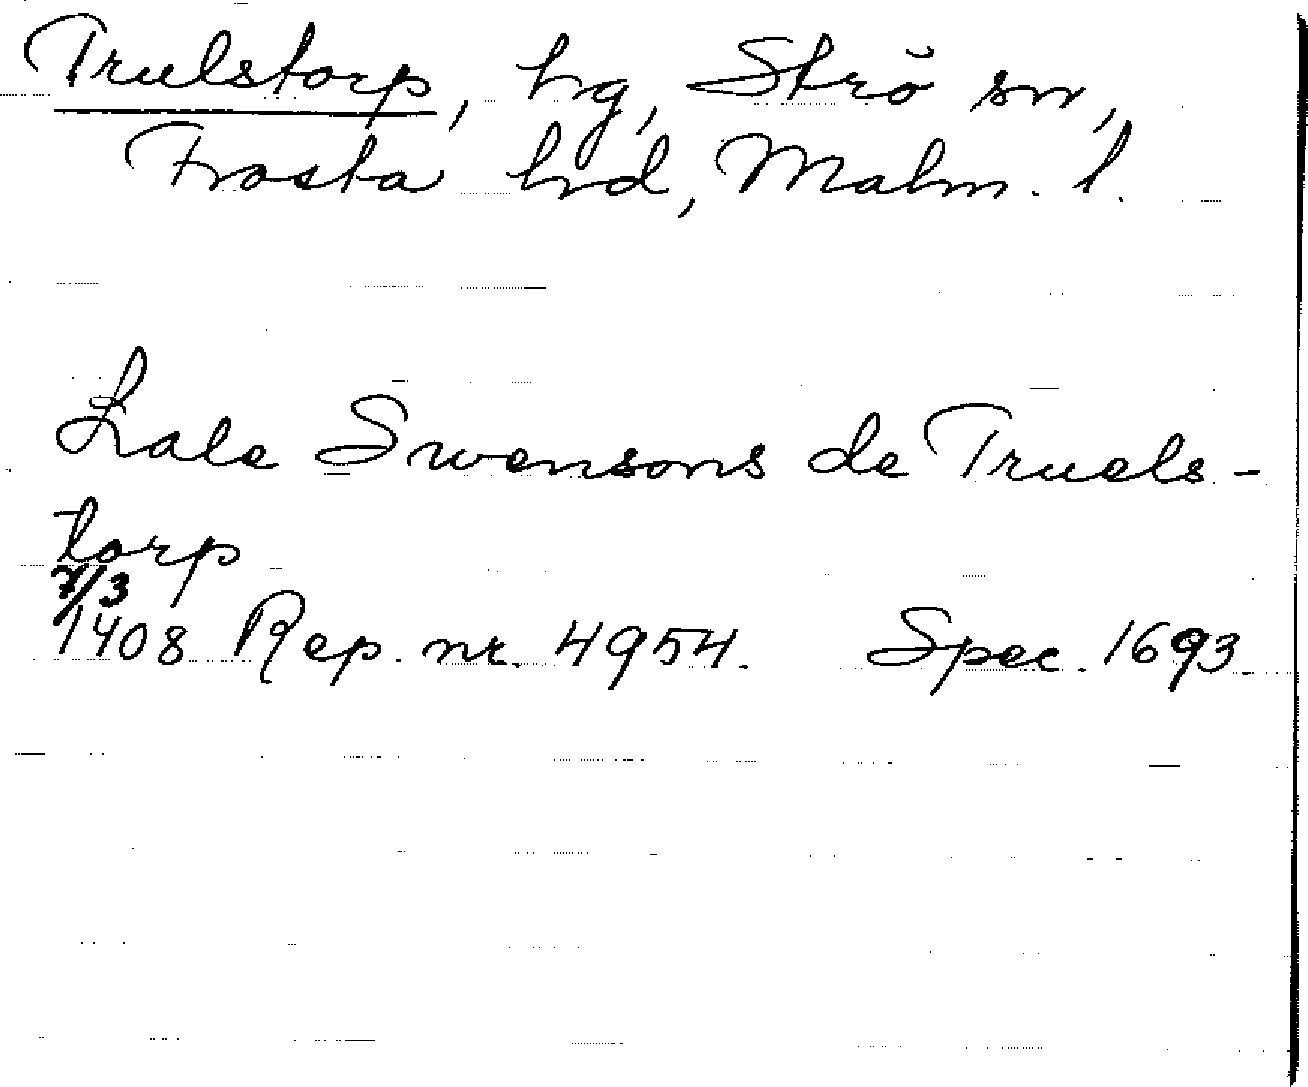 Trulstorp, hg, Skrö sn,
Frosta hrd, Malm. l.
Lale Swensons de Truels-
torp
7/3
1408 Rep. nr. 4954. Spec. 1693